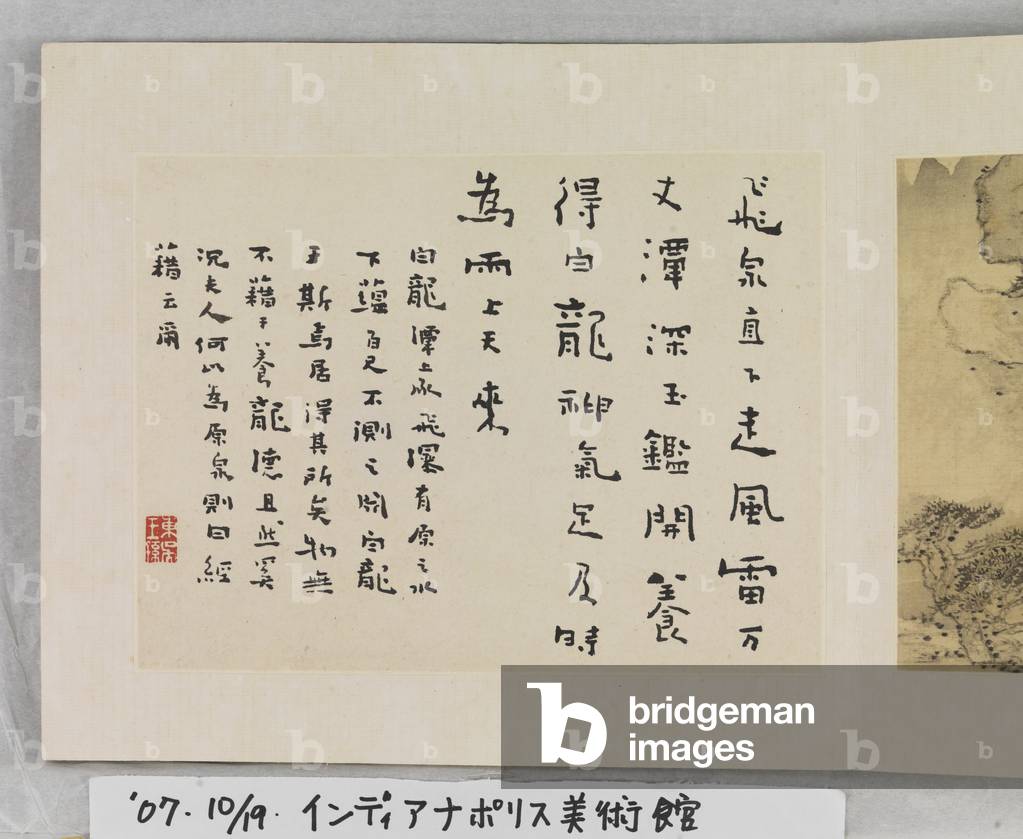 飛泉直下走風雷万
丈潭深玉鑑開養
得白龍神氣足及時
為雨上天來
白龍潭上承飛瀑有原之水
下蘊百尺不測之淵白龍
王斯焉居得其所矣物無
不藉于養龍德且然奚
況夫人何以為原泉則曰經
藉云爾
東吳王孫
bridgeman
images
'07.10/19. インディアナポリス美術館